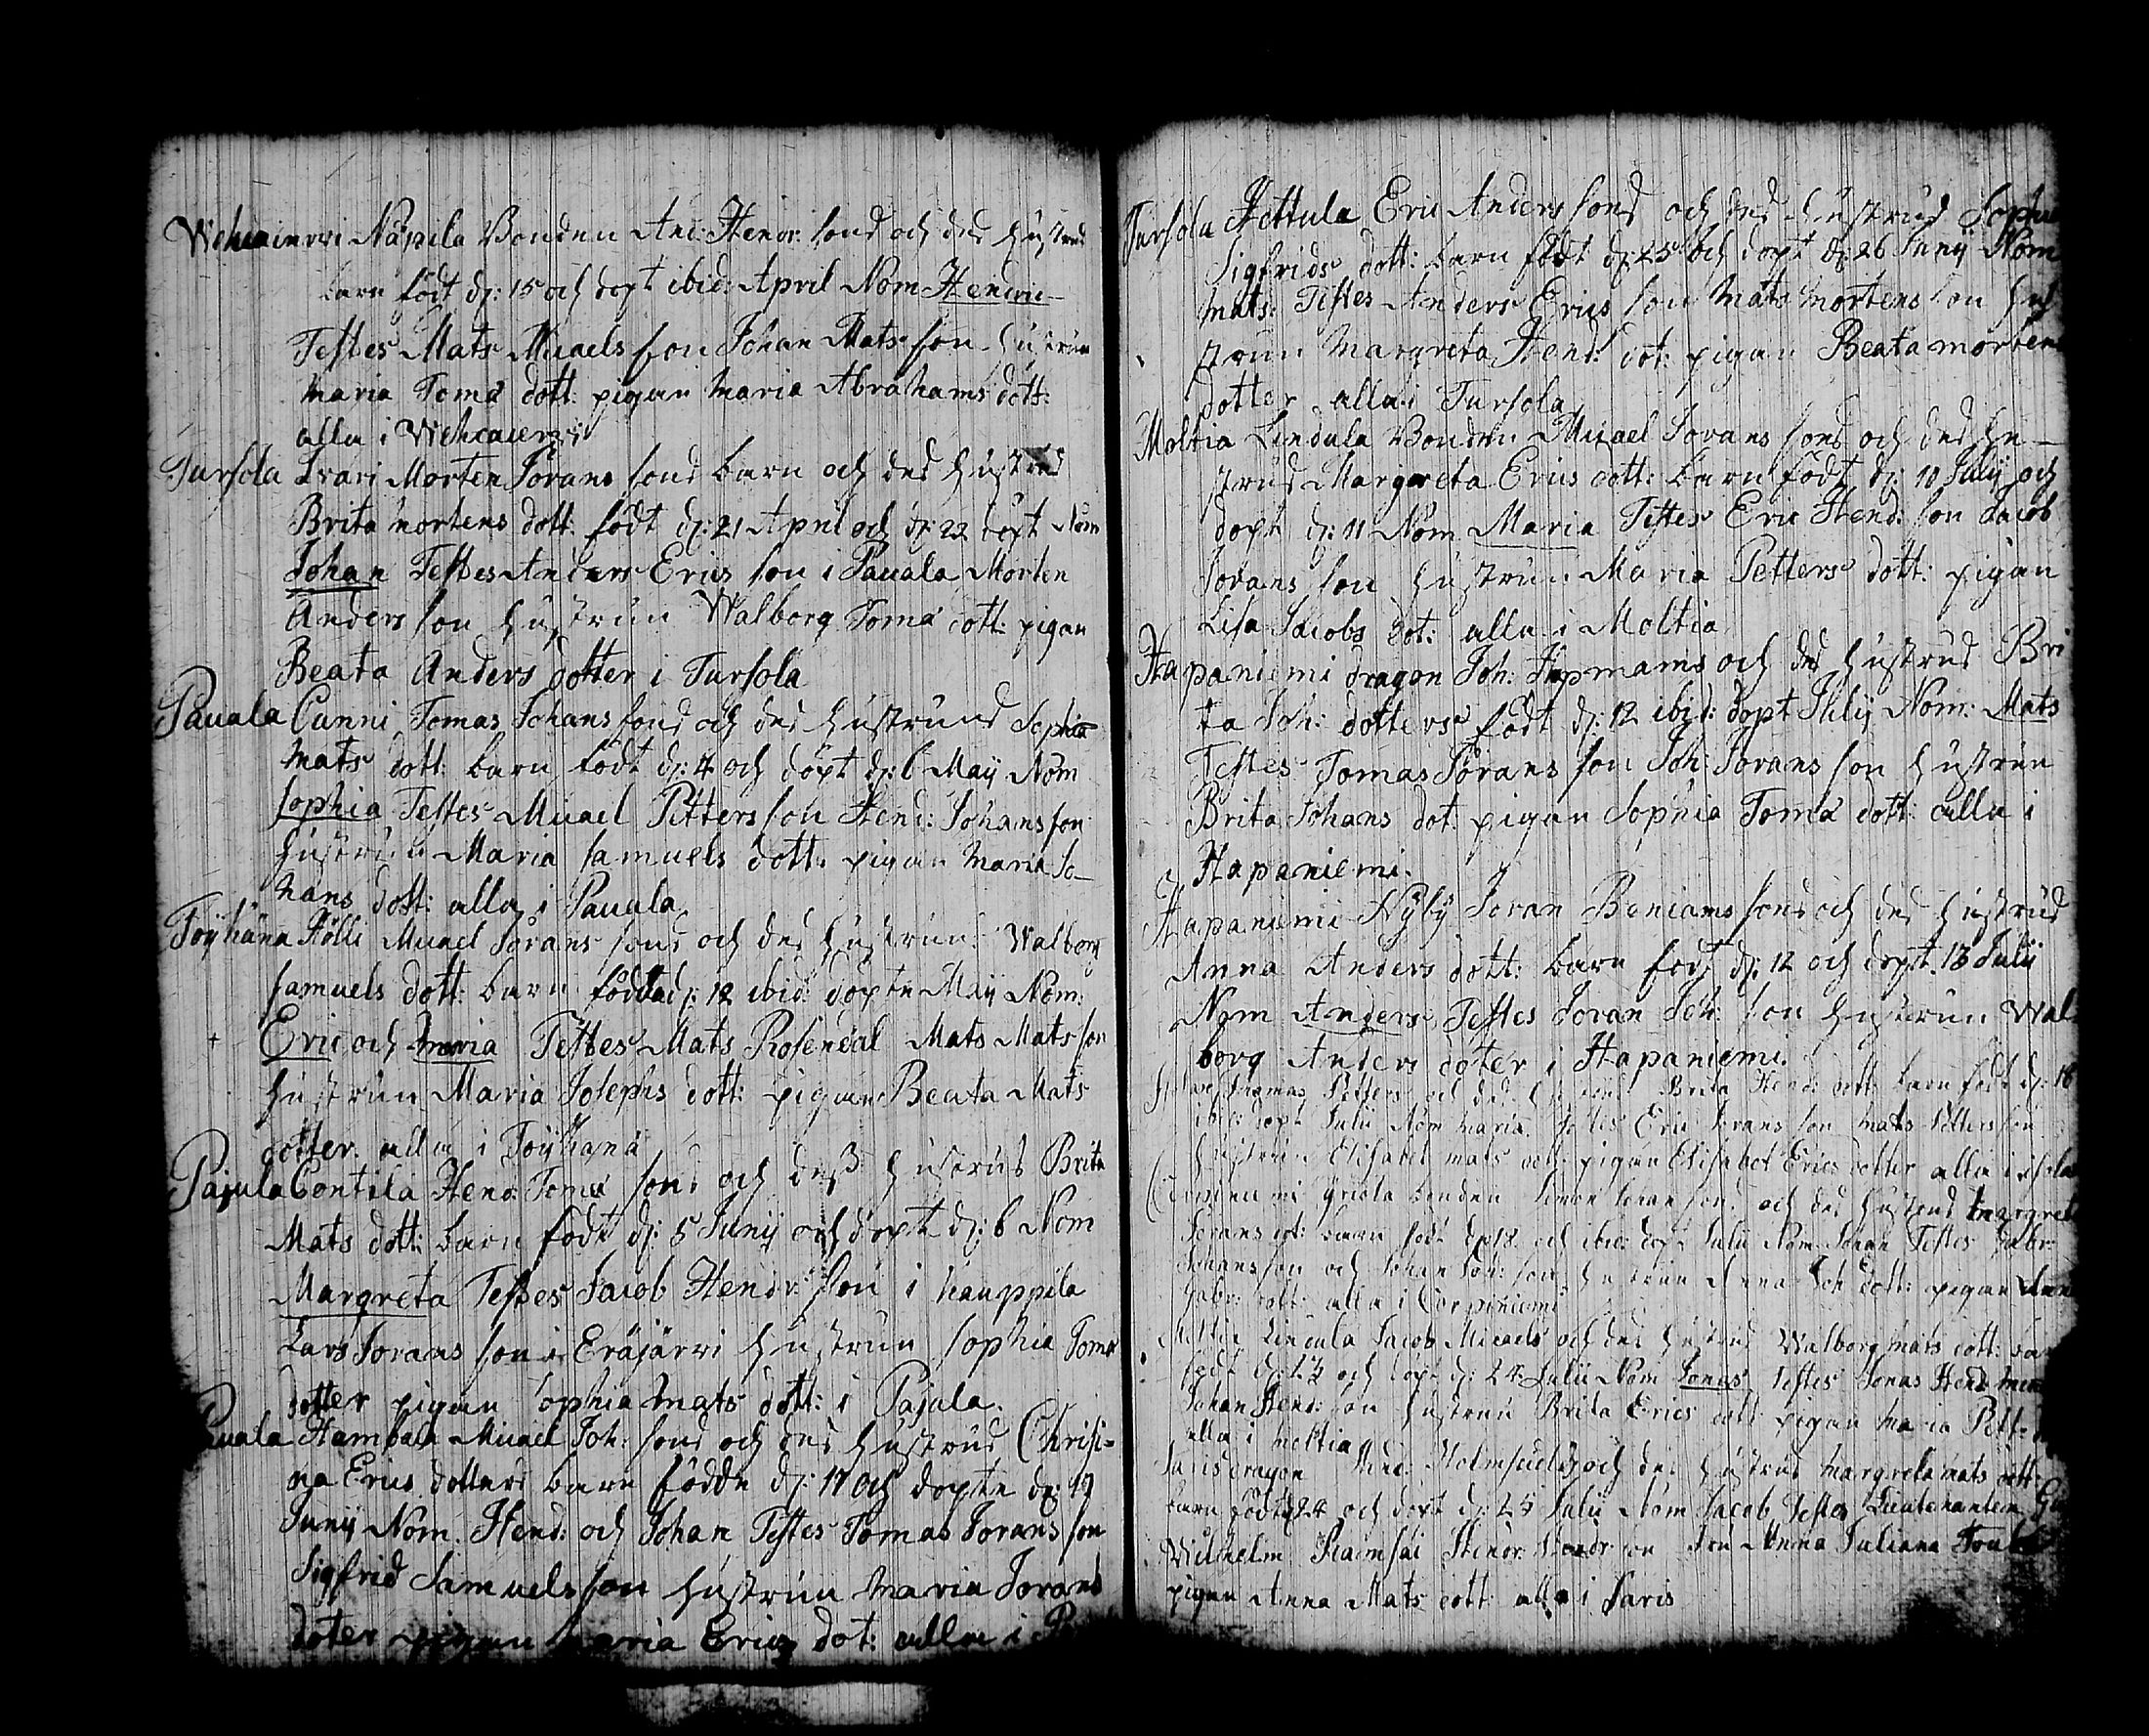 Wehcaierwi Näpila Bonden And: Hendr: sons och des hustrus
barn födt d: 15 och döpt ibid: April Nom Hendric
Testes Mats Micaels son Johan Mats son hustrun
Maria Toma dott: pigan Maria Abrahams dott:
alla i Wehcaierwi
Tursola Isari Morten Jörans sons barn och des hustrus
Brita Mortens dott: födt d: 21 April och d: 22 döpt Nom
Johan Testes Anders Erics son i Pauala Morten
Anders son hustrun Walborg Toma dott: pigan
Beata Anders dotter i Tursola
Pauala Cunni Tomas Johans sons och des hustrus Sophia
Mats dott: barn födt d: 4 och döpt d: 6 Maij Nom
Sophia Testes Micael Petters son Hend: Johans son
hustrun Maria Samuels dott: pigan Maria Jo-
hans dott: alla i Pauala
Töyhänä Hölli Micael Jörans sons och des hustrus Walborg
Samuels dott: barn födda d: 12 ibid: döpte Maij Nom:
Eric och Maria Testes Mats Rosendal Mats Mats son
hustrun Maria Josephs dott: pigan Beata Mats
dotter alla i Töyhänä
Pajula Contila Hend: Toma sons och dess hustrus Brita
Mats dott: barn födt d: 5 Junij och döpt d: 6 Nom
Margreta Testes Jacob Hendr: son i Kauppila
Lars Jorans son i Eräjärwi hustrun Sophia Toma
dotter pigan Sophia Mats dott: i Pajula.
Micael Joh: sons och des hustrus Christi-
na Erics dotters barn födde d: 17 och döpte d: 19
Junij Nom. Hend: och Johan Testes Tomas Jorans son
Sigfrid Samuels son hustrun Maria Jorans
doter pigan Maria Erics dot: alla i
Tursola Hettula Eric Anders sons och des hustrus Sophia
Sigfrids dott: barn födt d: 25 och döpt d: 26 Junij Nom
Mats: Testes Anders Erics son Mats Mortens son hu
strun Margreta Hend: dot: pigan Beata Mortens
dotter alla i Tursola
Moltia Lindula Bonden Micael Jorans sons och des hu-
strus Margreta Erics dott: barn födt d: 10 Julij och
döpt d: 11 Nom Maria Testes Eric Hend: son Jacob
Jorans son hustrun Maria Petters dott: pigan
Lisa Jacobs dot: alla i Moltia
Hapaniemi dragon Joh: Hopmans och des hustrus Bri
ta Joh: dotters födt d: 12 ibid: döpt Julij Nom: Mats
Testes Tomas Jörans son Joh: Jorans son hustrun
Brita Johans dot: pigan Sophia Toma dott: alla i
Hapaniemi.
Hapaniemi Nÿbÿ Joran Beniams sons och des hustrus
Anna Anders dott: barn födt d: 12 och döpt 13 Julij
Nom Anders Testes Joran Joh: son hustrun Wal-
borg Anders doter i Hapaniemi.
Thomas Petters och des hustrus Brita Hend: dott: barn födt d: 16
ibid: döpt Julij Nom Maria. Testes Eric Jorans son Mats Petters son
hustrun Elisabet Mats dott: pigan Elisabet Erics dotter alla i
bonden Simon Johan sons och des hustrus Margret
Jorans dot: barn födt d: 18 och ibid: döpt Julij Nom Johan Testes Gabr:
Johans son och Johan Joh: son hustrun Anna Joh dott: pigan Ann
Gabr: dott: alla i Corpiniemi
Moltia Lindula Jacob Micaels och des hustrus Walborg Mats dott: ba
födt d: 23 och döpt d: 24 Julij Nom Jonas Testes Jonas Hend
Johan Hend: son hustrun Brita Erics dott: pigan Maria Pett:
alla i Moltia
Saris dragon Hend: och des hustrus Margreta Mats dott:
barn födt d: 24 och döpt d: 25 Julij Nom Jacob Testes Lieutenanten
Wilhelm Ramsai Hendr: Hendr: son fru Anna Juliana
pigan Anna Mats dott: alla i Saris